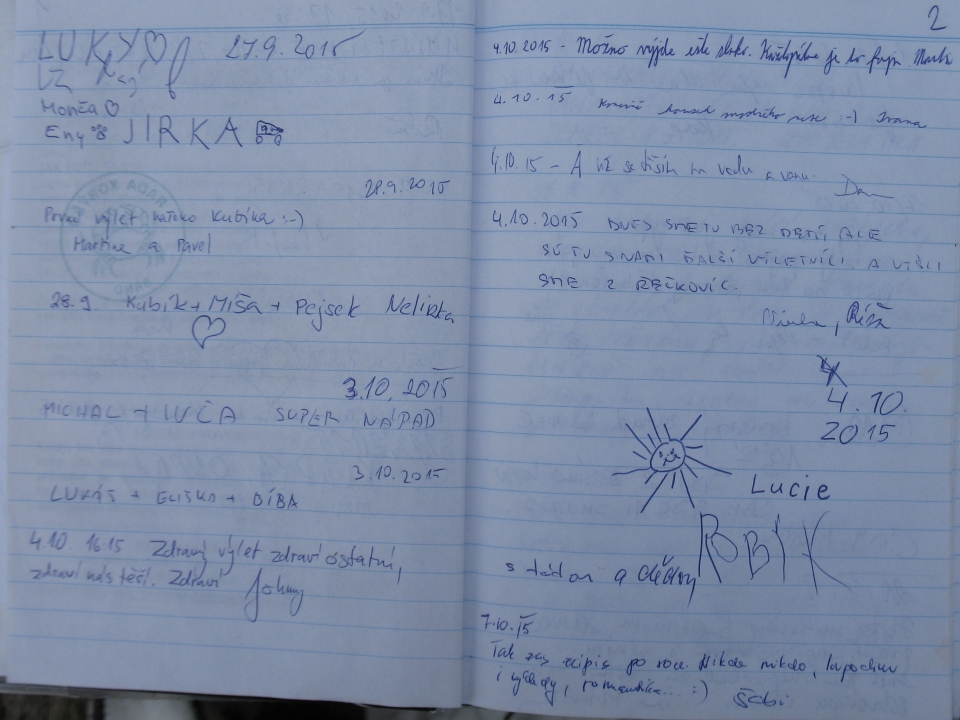 LUKY 27.9.2015
Monča
Eny JIRKA
28.9.2015
První výlet našeho Kubíka :-)
Martina a Pavel
28.9 Kubík + Míša + Pejsek Nelinka
3.10.2015
MICHAL + IVČA SUPER NÁPAD
3.10.2015
LUKÁŠ + ELIŠKA + BÍBA
4.10. 16.15 Zdravý výlet zdraví ostatní,
zdraví nás těší. Zdraví Johny
2
4.10.2015 - Možno výjde ešte slnko. Každopádne je to fajn.
4.10.15 kousek modrého :-) Ivana
4.10.15 - A už se těším na vodu a vanu.
4.10.2015 DNES SME TU BEZ DETÍ, ALE
SÚ TU S NAMI ĎALŠÍ VÝLETNÍCI. A VYŠLI
SME Z ŘEČKOVIC.
Ríša
4.10.
2015
Lucie
ROBÍK
s tátou a dědou
7.10.15
Tak zas zápis po roce. Nikde nikdo,
i výhledy, romantika... :)